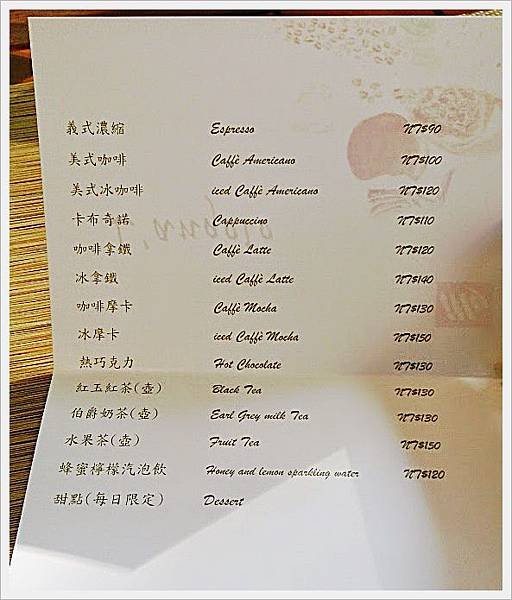 義式濃縮 Espresso NT$90
美式咖啡 Caffè Americano NT$100
美式冰咖啡 iced Caffè Americano NT$120
卡布奇諾 Cappuccino NT$110
咖啡拿鐵 Caffè Latte NT$120
冰拿鐵 iced Caffè Latte NT$140
咖啡摩卡 Caffè Mocha NT$130
冰摩卡 iced Caffè Mocha NT$150
熱巧克力 Hot Chocolate NT$130
紅玉紅茶(壺) Black Tea NT$130
伯爵奶茶(壺) Earl Grey milk Tea NT$130
水果茶(壺) Fruit Tea NT$150
蜂蜜檸檬汽泡飲 Honey and lemon sparkling water NT$120
甜點(每日限定) Dessert